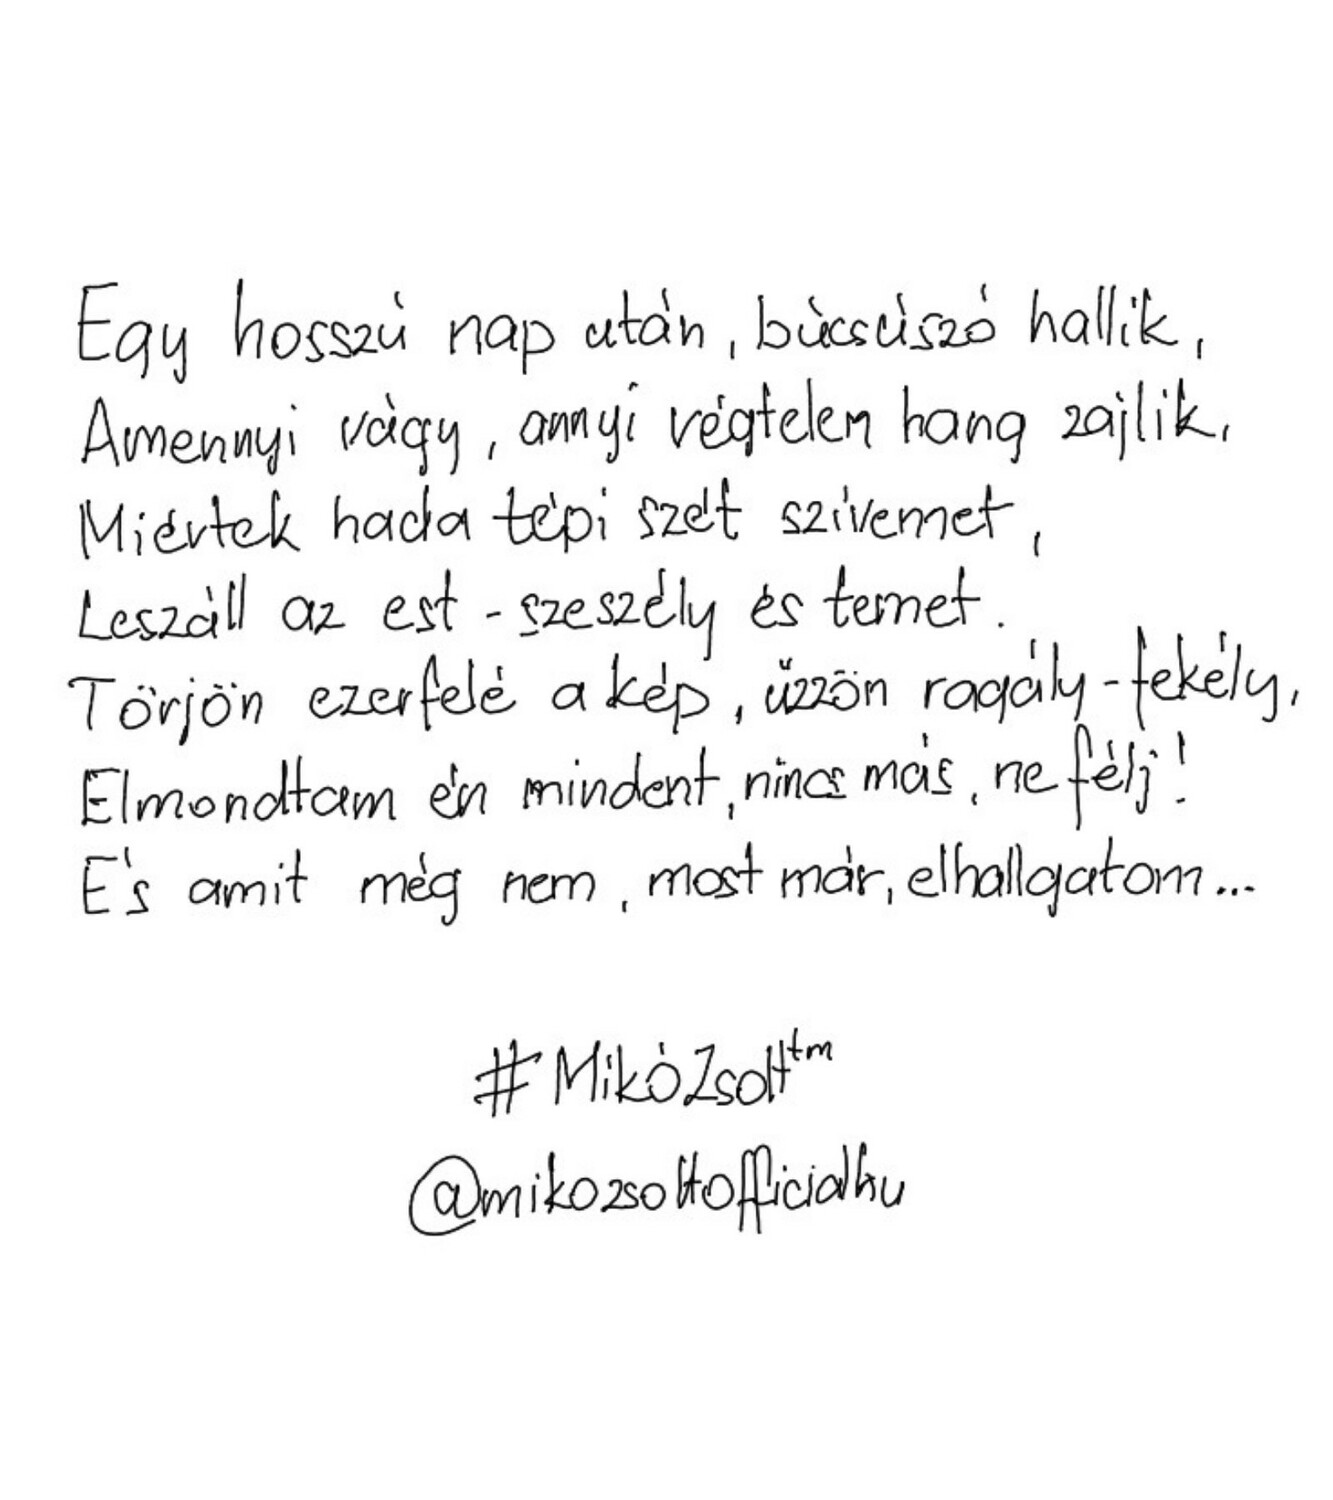 Egy hosszú nap után, búcsúszó hallik,
Amennyi vágy, annyi végtelen hang zajlik,
Miértek hada tépi szét szívemet,
Leszáll az est - szeszély és temet.
Törjön ezerfelé a kép, űzzön ragály-fekély,
Elmondtam én mindent, nincs más, ne félj!
És amit még nem, most már, elhallgatom...
#MikóZsolt™
@mikozsoltofficialhu